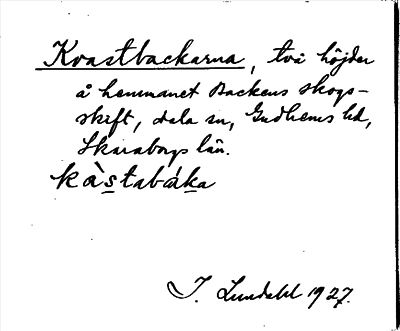 Kvastbackarna, två höjder
å hemmanet Backens skogs-
skift, Dala sn, Gudhems hd,
Skaraborgs län.
kàstabáka
I. Lundahl 1927.